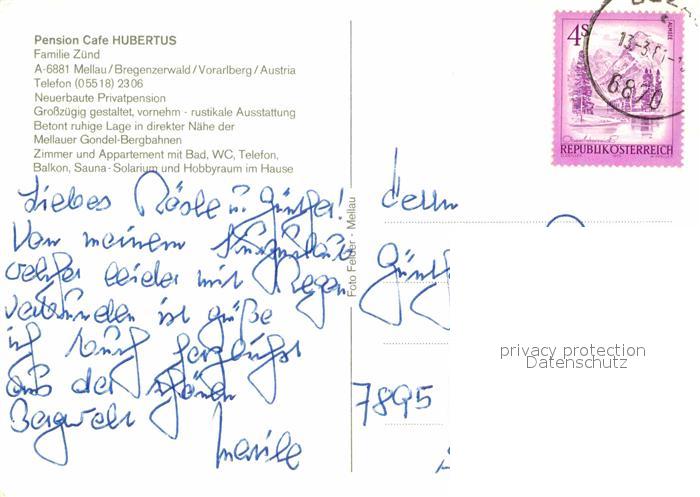 Pension Cafe HUBERTUS
Familie Zünd
A-6881 Mellau/Bregenzerwald/Vorarlberg/Austria
Telefon (05518) 2306
Neuerbaute Privatpension
Großzügig gestaltet, vornehm - rustikale Ausstattung
Betont ruhige Lage in direkter Nähe der
Mellauer Gondel-Bergbahnen
Zimmer und Appartement mit Bad, WC, Telefon,
Balkon, Sauna-Solarium und Hobbyraum im Hause
Liebes Rösle u. Günther!
Von meinem
welcher leider mit Regen
verbunden ist grüße
ich Euch herzlichst
aus der schönen
Bergwelt
Foto Felder - Mellau
4S
ALMSEE
REPUBLIK ÖSTERREICH
6870
Günth
7895
privacy protection
Datenschutz